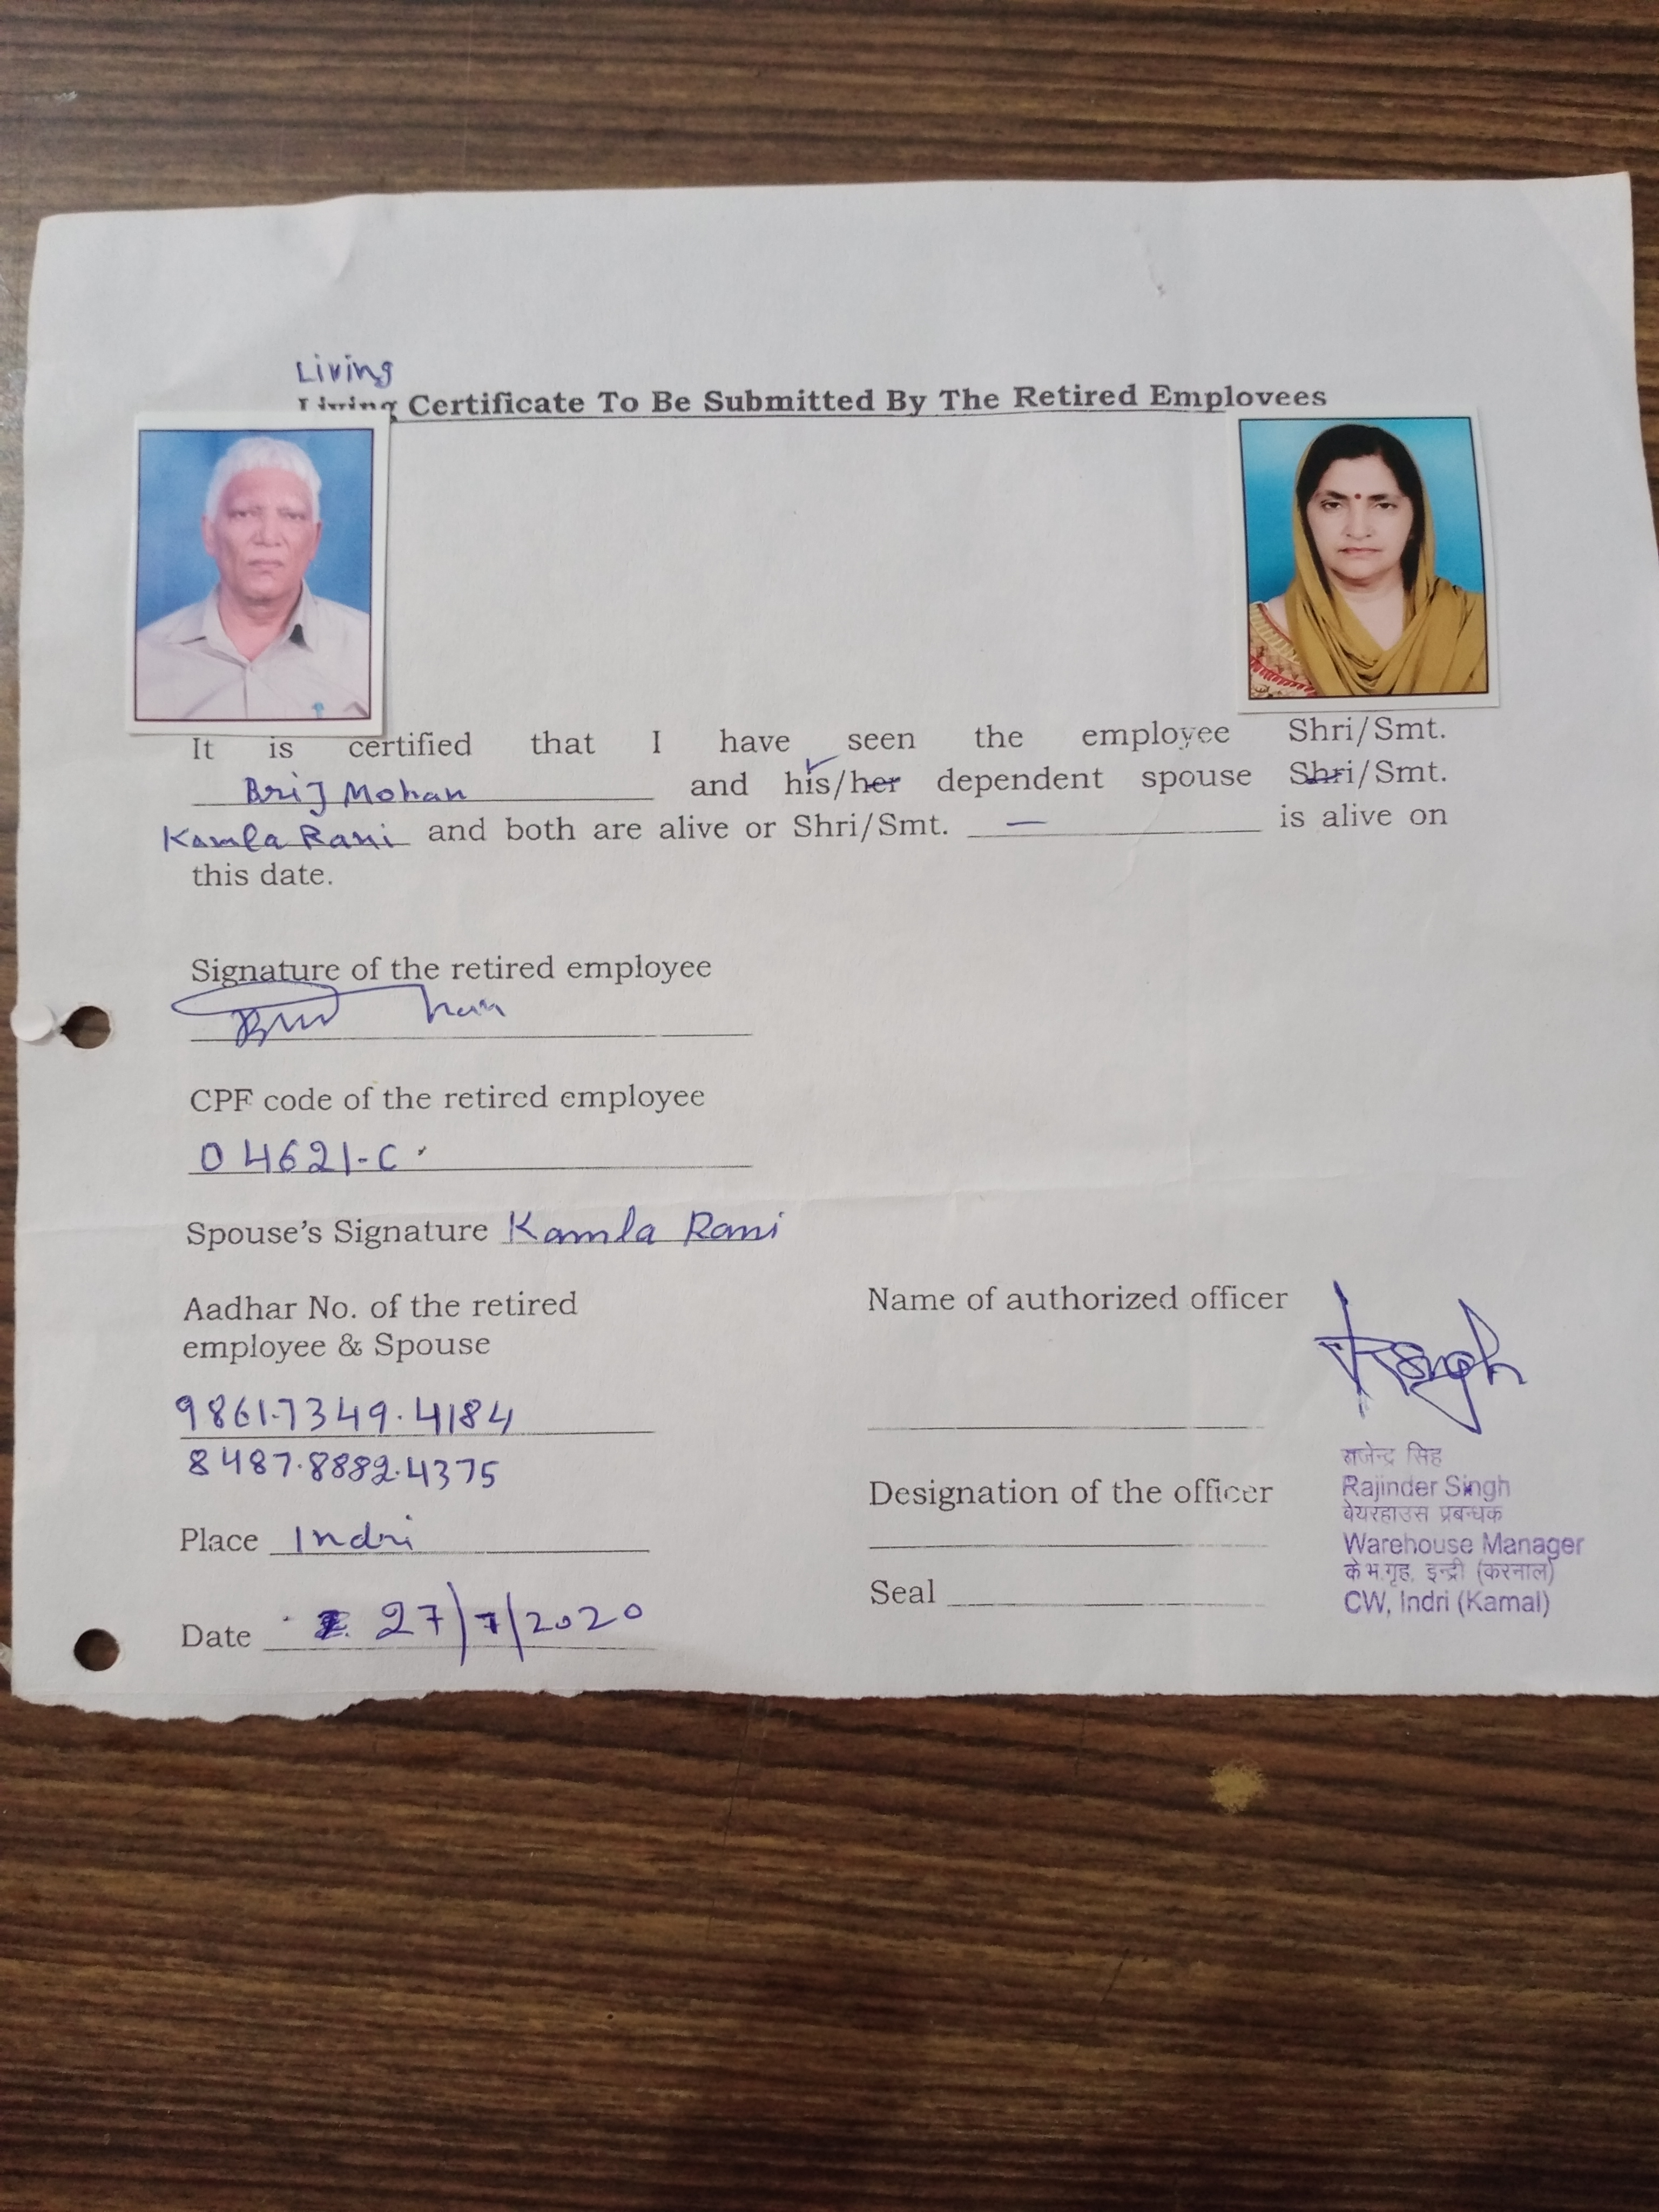 Living
Living Certificate To Be Submitted By The Retired Employees
It is certified that I have seen the employee Shri/Smt.
Brij Mohan and his/her dependent spouse Shri/Smt.
Kamla Rani and both are alive or Shri/Smt. — is alive on
this date.
Signature of the retired employee
CPF code of the retired employee
04621-C
Spouse's Signature Kamla Rani
Aadhar No. of the retired
employee & Spouse
9861.7349.4184
8487.8882.4375
Place Indri
Date 27/7/2020
Name of authorized officer
Designation of the officer
Seal
राजेन्द्र सिंह
Rajinder Singh
वेयरहाउस प्रबन्धक
Warehouse Manager
के.भ.गृह, इन्द्री (करनाल)
CW, Indri (Karnal)